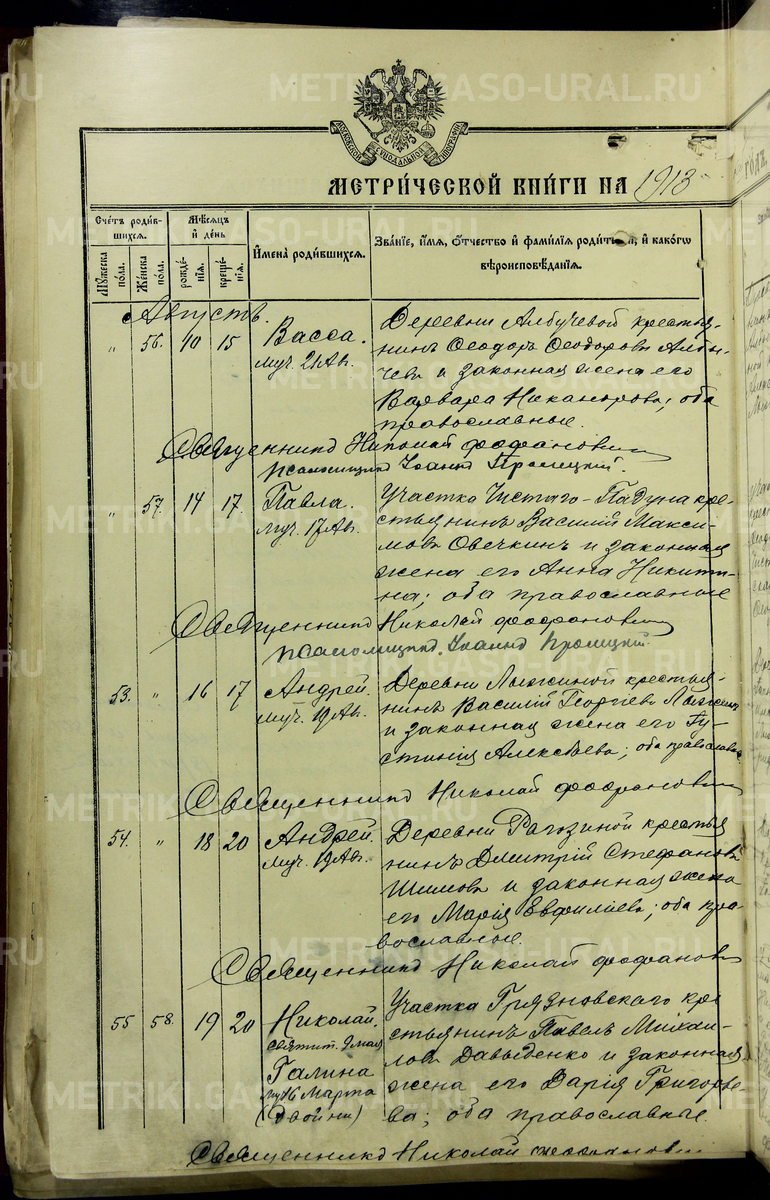 МОСКОВСКОЙ СѴНОДАЛЬНОЙ ТИПОГРАФІИ
МЕТРИ́ЧЕСКОЙ КНИ́ГИ НА 1913
Сче́тъ роди́в-
шихся.
Мѣ́сяцъ
и҆ де́нь
Му́жеска по́ла.
Же́нска по́ла.
рожде́нїѧ.
креще́нїѧ.
И҆мена̀ роди́вшихся.
Зва́нїе, и҆́мѧ, ѻ҆́тчество и҆ фами́лїѧ роди́телей, и҆ како́гѡ
вѣроисповѣ́данїѧ.
Августъ.
„ 56. 10 15 Васса.
муч. 21 Ав.
Деревни Албычевой крестья-
нинъ Ѳеодоръ Ѳеодоровъ Албы-
чевъ и законная жена его
Варвара Никанорова; оба
православные.
Священникъ Николай Фофановъ
псаломщикъ Іоаннъ
„ 57. 14 17. Павла.
муч. 17 Ав.
Участка Чистаго-Падуна кре-
стьянинъ Василій Макси-
мовъ Овечкинъ и законная
жена его Анна Никити-
на; оба православные
Священникъ Николай Фофановъ
псаломщикъ Іоаннъ
53. „ 16 17 Андрей.
муч. 19 Ав.
Деревни Лыжиной крестья-
нинъ Василій Георгіевъ Лыжинъ
и законная жена его Іу-
стинія Алексѣева; оба православн
Священникъ Николай Фофановъ
54. „ 18 20 Андрей.
муч. 19 Ав.
Деревни Рагозиной крестья
нинъ Дмитрій Стефановъ
Шиловъ и законная жена
его Марія Евфиміева; оба пра-
вославные.
Священникъ Николай Фофановъ
55 58. 19 20 Николай.
святит. 9 мая
Галина
муч. 16 Марта
(двойни)
Участка Грязновскаго кре
стьянинъ Павелъ Михаи-
ловъ Давыденко и законная
жена его Дарія Григорье-
ва; оба православные.
Священникъ Николай Фофановъ
METRIKI.GASO-URAL.RU